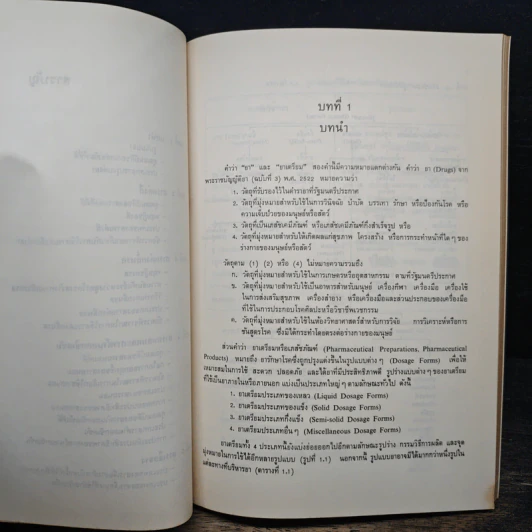 สารบัญ
บทที่ 1
บทนำ
คำว่า "ยา" และ "ยาเตรียม" สองคำนี้มีความหมายแตกต่างกัน คำว่า ยา (Drugs) จาก
พระราชบัญญัติยา (ฉบับที่ 3) พ.ศ. 2522 หมายความว่า
1. วัตถุที่รับรองไว้ในตำรายาที่รัฐมนตรีประกาศ
2. วัตถุที่มุ่งหมายสำหรับใช้ในการวินิจฉัย บำบัด บรรเทา รักษา หรือป้องกันโรค หรือ
ความเจ็บป่วยของมนุษย์หรือสัตว์
3. วัตถุที่เป็นเภสัชเคมีภัณฑ์ หรือเภสัชเคมีภัณฑ์กึ่งสำเร็จรูป หรือ
4. วัตถุที่มุ่งหมายสำหรับให้เกิดผลแก่สุขภาพ โครงสร้าง หรือการกระทำหน้าที่ใดๆ ของ
ร่างกายของมนุษย์หรือสัตว์
วัตถุตาม (1) (2) หรือ (4) ไม่หมายความรวมถึง
ก. วัตถุที่มุ่งหมายสำหรับใช้ในการเกษตรหรืออุตสาหกรรม ตามที่รัฐมนตรีประกาศ
ข. วัตถุที่มุ่งหมายสำหรับใช้เป็นอาหารสำหรับมนุษย์ เครื่องกีฬา เครื่องมือ เครื่องใช้
ในการส่งเสริมสุขภาพ เครื่องสำอาง หรือเครื่องมือและส่วนประกอบของเครื่องมือ
ที่ใช้ในการประกอบโรคศิลปะหรือวิชาชีพเวชกรรม
ค. วัตถุที่มุ่งหมายสำหรับใช้ในห้องวิทยาศาสตร์สำหรับการวิจัย การวิเคราะห์หรือการ
ชันสูตรโรค ซึ่งมิได้กระทำโดยตรงต่อร่างกายของมนุษย์
ส่วนคำว่า ยาเตรียมหรือเภสัชภัณฑ์ (Pharmaceutical Preparations, Pharmaceutical
Products) หมายถึง ยารักษาโรคซึ่งถูกปรุงแต่งขึ้นในรูปแบบต่างๆ (Dosage Forms) เพื่อให้
เหมาะสมในการใช้ สะดวก ปลอดภัย และได้ยาที่มีประสิทธิภาพดี รูปร่างแบบต่างๆ ของยาเตรียม
ที่ใช้เป็นยาภายในหรือภายนอก แบ่งเป็นประเภทใหญ่ๆ ตามลักษณะทั่วไป ดังนี้
1. ยาเตรียมประเภทของเหลว (Liquid Dosage Forms)
2. ยาเตรียมประเภทของแข็ง (Solid Dosage Forms)
3. ยาเตรียมประเภทกึ่งแข็ง (Semi-solid Dosage Forms)
4. ยาเตรียมประเภทอื่นๆ (Miscellaneous Dosage Forms)
ยาเตรียมทั้ง 4 ประเภทนี้ยังแบ่งย่อยออกไปอีกตามลักษณะรูปร่าง กรรมวิธีการผลิต และจุด
มุ่งหมายในการใช้ได้อีกหลายรูปแบบ (รูปที่ 1.1) นอกจากนี้ รูปแบบยาอาจมีได้มากกว่าหนึ่งรูปใน
แต่ละทางที่บริหารยา (ตารางที่ 1.1)